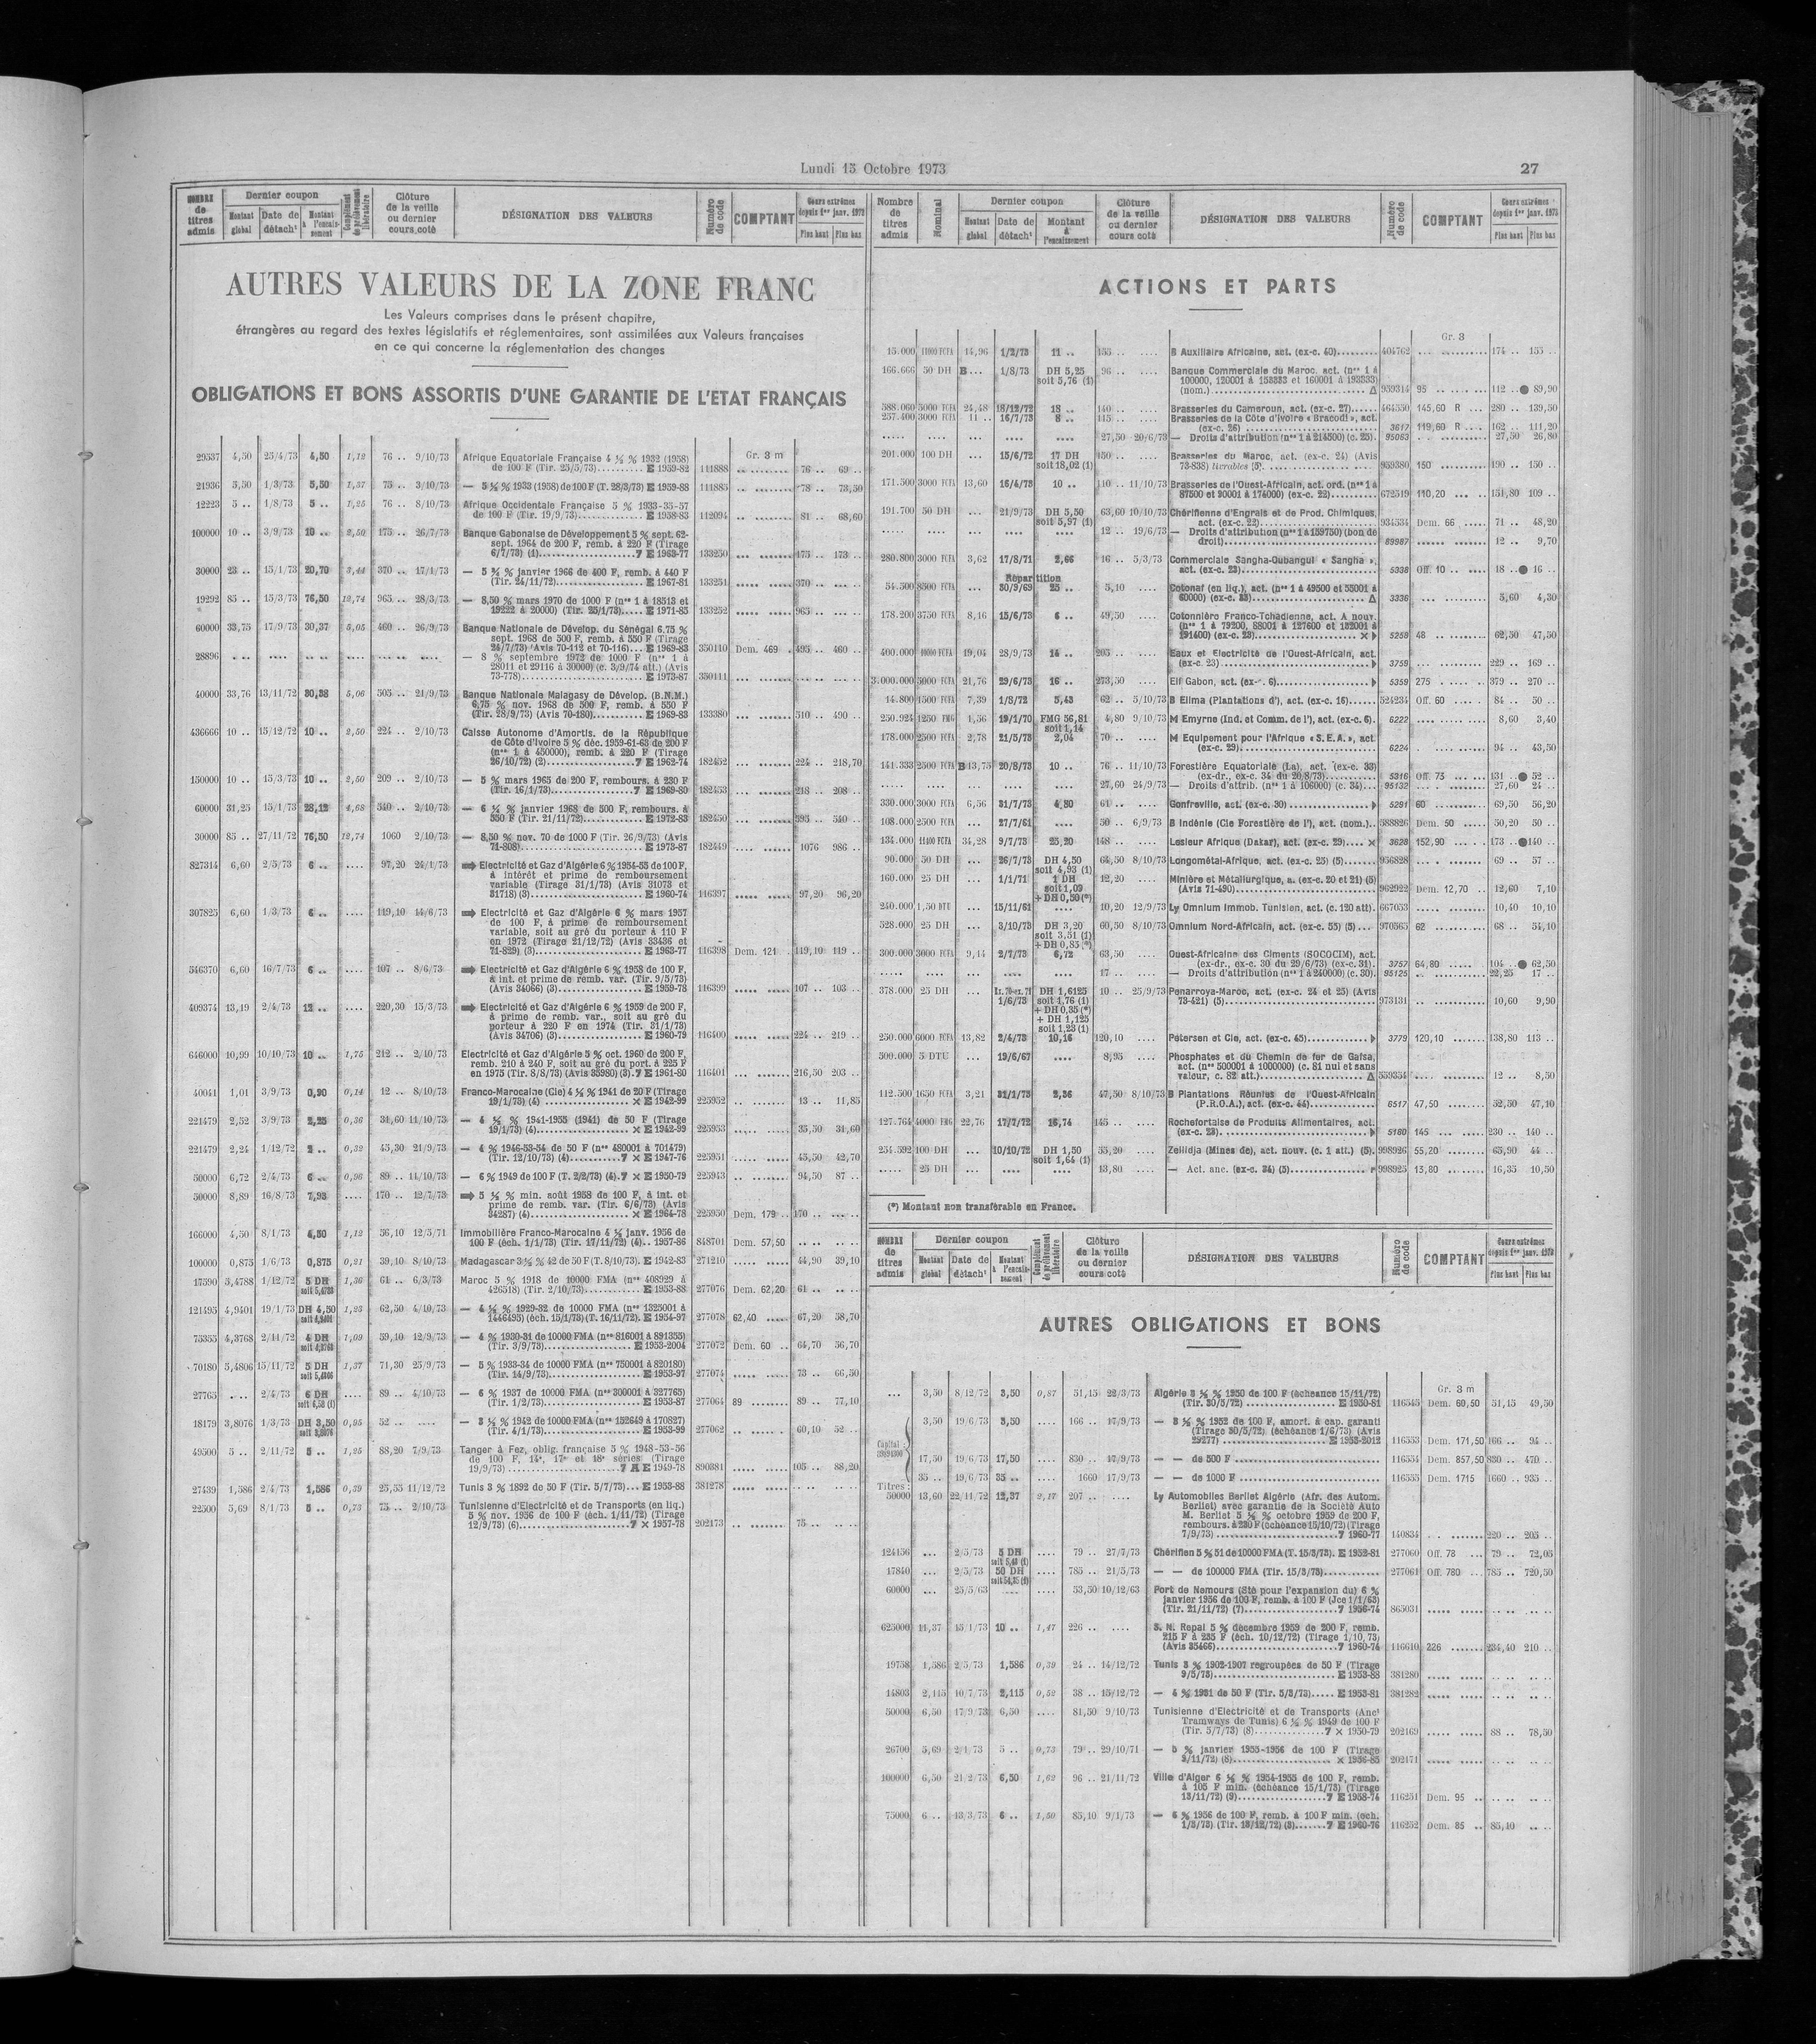 Lundi 15 Octobre 1973
27
NOMBRE de titres admis
Dernier coupon
Montant global
Date de détach^t
Montant à l'encaissement
Complément de prélèvement libératoire
Clôture de la veille ou dernier cours coté
DÉSIGNATION DES VALEURS
Numéro de code
COMPTANT
Cours extrêmes depuis 1er janv. 1973
Plus haut Plus bas
AUTRES VALEURS DE LA ZONE FRANC
Les Valeurs comprises dans le présent chapitre,
étrangères au regard des textes législatifs et réglementaires, sont assimilées aux Valeurs françaises
en ce qui concerne la réglementation des changes
OBLIGATIONS ET BONS ASSORTIS D'UNE GARANTIE DE L'ETAT FRANÇAIS
Gr. 3 m
29537 4,50 25/4/73 4,50 1,12 76 .. 9/10/73 Afrique Equatoriale Française 4 ½ % 1932 (1958)
de 100 F (Tir. 25/5/73).......... E 1959-82 111888 .. ........ 76 .. 69 ..
21936 5,50 1/3/73 5,50 1,37 75 .. 3/10/73 — 5 ½ % 1933 (1958) de 100 F (T. 28/3/73) E 1959-88 111885 .. ........ 78 .. 73,50
12223 5 .. 1/8/73 5 .. 1,25 76 .. 8/10/73 Afrique Occidentale Française 5 % 1933-35-57
de 100 F (Tir. 19/9/73).............. E 1958-83 112094 .. ........ 81 .. 68,60
100000 10 .. 3/9/73 10 .. 2,50 175 .. 26/7/73 Banque Gabonaise de Développement 5 % sept. 62-
sept. 1964 de 200 F, remb. à 220 F (Tirage
6/7/73) (1)..................... 7 E 1963-77 133250 ... ....... 175 .. 173 ..
30000 23 .. 15/1/73 20,70 3,44 370 .. 17/1/73 — 5 ¾ % janvier 1966 de 400 F, remb. à 440 F
(Tir. 24/11/72)................... E 1967-81 133251 ..... ..... 370 .. .... ..
19292 85 .. 15/3/73 76,50 12,74 965 .. 28/3/73 — 8,50 % mars 1970 de 1000 F (nos 1 à 18513 et
19222 à 20000) (Tir. 25/1/73)..... E 1971-85 133252 ..... ..... 965 .. .... ..
60000 33,75 17/9/73 30,37 5,05 460 .. 26/9/73 Banque Nationale de Dévelop. du Sénégal 6,75 %
sept. 1968 de 500 F, remb. à 550 F (Tirage
24/7/73) (Avis 70-112 et 70-116)... E 1969-83 350110 Dem. 469 . 495 .. 460 ..
28896 .. .. .... .... .... .... — 8 % septembre 1972 de 1000 F (nos 1 à
28011 et 29116 à 30000) (c. 3/9/74 att.) (Avis
73-778)......................... E 1973-87 350111 ... ....... .... .. .... ..
40000 33,76 13/11/72 30,38 5,06 505 .. 21/9/73 Banque Nationale Malagasy de Dévelop. (B.N.M.)
6,75 % nov. 1968 de 500 F, remb. à 550 F
(Tir. 28/9/73) (Avis 70-180)........... E 1969-83 133380 ... ....... 510 .. 490 ..
436666 10 .. 15/12/72 10 .. 2,50 224 .. 2/10/73 Caisse Autonome d'Amortis. de la République
de Côte d'Ivoire 5 % déc. 1959-61-63 de 200 F
(nos 1 à 450000), remb. à 220 F (Tirage
26/10/72) (2)................... 7 E 1962-74 182452 ... ....... 224 .. 218,70
150000 10 .. 15/3/73 10 .. 2,50 209 .. 2/10/73 — 5 % mars 1965 de 200 F, rembours. à 230 F
(Tir. 16/1/73).................. 7 E 1969-80 182453 ... ....... 218 .. 208 ..
60000 31,25 15/1/73 28,12 4,68 540 .. 2/10/73 — 6 ¼ % janvier 1968 de 500 F, rembours. à
550 F (Tir. 21/11/72)............. E 1972-83 182450 ... ....... 595 .. 540 ..
30000 85 .. 27/11/72 76,50 12,74 1060 2/10/73 — 8,50 % nov. 70 de 1000 F (Tir. 26/9/73) (Avis
71-808)......................... E 1973-87 182449 ... ....... 1076 986 ..
827314 6,60 2/5/73 6 .. .... 97,20 24/1/73 ➡ Electricité et Gaz d'Algérie 6 % 1954-53 de 100 F,
à intérêt et prime de remboursement
variable (Tirage 31/1/73) (Avis 31073 et
31718) (3)....................... E 1960-74 116397 ..... ..... 97,20 96,20
307825 6,60 1/3/73 6 .. .... 119,10 14/6/73 ➡ Electricité et Gaz d'Algérie 6 % mars 1957
de 100 F, à prime de remboursement
variable, soit au gré du porteur à 110 F
en 1972 (Tirage 21/12/72) (Avis 33436 et
71-829) (3)...................... E 1963-77 116398 Dem. 121 . 119,10 119 ..
546370 6,60 16/7/73 6 .. .... 107 .. 8/6/73 ➡ Electricité et Gaz d'Algérie 6 % 1958 de 100 F,
à int. et prime de remb. var. (Tir. 9/5/73)
(Avis 34066) (3)................... E 1959-78 116399 ..... ..... 107 .. 103 ..
409374 13,19 2/4/73 12 .. .... 220,30 15/3/73 ➡ Electricité et Gaz d'Algérie 6 % 1959 de 200 F,
à prime de remb. var., soit au gré du
porteur à 220 F en 1974 (Tir. 31/1/73)
(Avis 34706) (3)................... E 1960-79 116400 ..... ..... 224 .. 219 ..
646000 10,99 10/10/73 10 .. 1,75 212 .. 2/10/73 Electricité et Gaz d'Algérie 5 % oct. 1960 de 200 F,
remb. 210 à 240 F, soit au gré du port. à 225 F
en 1975 (Tir. 8/8/73) (Avis 35980) (3).7 E 1961-80 116401 ... ....... 216,50 203 ..
40041 1,01 3/9/73 0,90 0,14 12 .. 8/10/73 Franco-Marocaine (Cie) 4 ½ % 1941 de 20 F (Tirage
19/1/73) (4) ................... × E 1942-99 225952 .. ........ 13 .. 11,85
221479 2,52 3/9/73 2,25 0,36 31,60 11/10/73 — 4 ½ % 1941-1955 (1941) de 50 F (Tirage
19/1/73) (4).................... × E 1942-99 225953 ..... ..... 35,50 31,60
221479 2,24 1/12/72 2 .. 0,32 45,30 21/9/73 — 4 % 1946-53-54 de 50 F (nos 480001 à 701479)
(Tir. 12/10/73) (4)........... 7 × E 1947-76 225951 ..... ..... 45,50 42,70
50000 6,72 2/4/73 6 .. 0,96 89 .. 11/10/73 — 6 % 1949 de 100 F (T. 2/2/73) (4).7 × E 1950-79 225943 .. ........ 94,50 87 ..
50000 8,89 16/8/73 7,93 .... 170 .. 12/7/73 ➡ 5 ½ % min. août 1958 de 100 F, à int. et
prime de remb. var. (Tir. 6/6/73) (Avis
34287) (4)..................... × E 1964-78 225950 Dem. 179 .. 170 .. .... ..
166000 4,50 8/1/73 4,50 1,12 56,10 12/5/71 Immobilière Franco-Marocaine 4 ½ janv. 1956 de
100 F (éch. 1/1/73) (Tir. 17/11/72) (4).. 1957-86 848701 Dem. 57,50 .. .. .. ..
100000 0,875 1/6/73 0,875 0,21 39,10 8/10/73 Madagascar 3 ½ % 42 de 50 F (T. 8/10/73). E 1942-83 271210 ..... ..... 44,90 39,10
17590 5,4788 1/12/72 5 DH soit 5,4788 1,36 61 .. 6/3/73 Maroc 5 % 1918 de 10000 FMA (nos 408929 à
426518) (Tir. 2/10/73)............. E 1953-88 277076 Dem. 62,20 61 .. .. ..
121495 4,9401 19/1/73 DH 4,50 soit 4,9401 1,23 62,50 4/10/73 — 4 ½ % 1929-32 de 10000 FMA (nos 1325001 à
1446495) (éch. 15/1/73) (T. 16/11/72). E 1954-97 277078 62,40 ..... 67,20 58,70
75355 4,3768 2/11/72 4 DH soit 4,3768 1,09 59,10 12/9/73 — 4 % 1930-31 de 10000 FMA (nos 816001 à 891355)
(Tir. 3/9/73)................... E 1953-2004 277072 Dem. 60 .. 64,70 56,70
70180 5,4806 15/11/72 5 DH soit 5,4806 1,37 71,30 25/9/73 — 5 % 1933-34 de 10000 FMA (nos 750001 à 820180)
(Tir. 14/9/73)................... E 1953-97 277074 ..... ..... 73 .. 66,50
27765 .... 2/4/73 6 DH soit 6,58 (1) .... 89 .. 4/10/73 — 6 % 1937 de 10000 FMA (nos 300001 à 327765)
(Tir. 1/2/73).................... E 1953-87 277064 89 ....... 89 .. 77,10
18179 3,8076 1/3/73 DH 3,50 soit 3,8076 0,95 52 .. .... — 3 ½ % 1942 de 10000 FMA (nos 152649 à 170827)
(Tir. 4/1/73).................... E 1953-99 277062 .. ...... . 60,10 52 ..
49500 5 .. 2/11/72 5 .. 1,25 88,20 7/9/73 Tanger à Fez, oblig. française 5 % 1948-53-56
de 100 F, 14e, 17e et 18e séries (Tirage
19/9/73)...................... 7 A E 1949-78 890381 ..... ..... 105 .. 88,20
27439 1,586 2/4/73 1,586 0,39 25,55 11/12/72 Tunis 3 % 1892 de 50 F (Tir. 5/7/73)... E 1953-88 381278 ..... ..... .. .. .. ..
22500 5,69 8/1/73 5 .. 0,73 75 .. 2/10/73 Tunisienne d'Electricité et de Transports (en liq.)
5 % nov. 1956 de 100 F (éch. 1/11/72) (Tirage
12/9/73) (6)..................... 7 × 1957-78 202173 .. ....... 75 .. .. ..
Nombre de titres admis
Nominal
Dernier coupon
Montant global
Date de détach^t
Montant à l'encaissement
Clôture de la veille ou dernier cours coté
DÉSIGNATION DES VALEURS
Numéro de code
COMPTANT
Cours extrêmes depuis 1er janv. 1973
Plus haut Plus bas
ACTIONS ET PARTS
Gr. 3
15.000 11000 FCFA 14,96 1/2/73 11 .. 155 .. .... B Auxiliaire Africaine, act. (ex-c. 40)......... 404762 ... .......... 174 .. 155 ..
166.666 50 DH B... 1/8/73 DH 5,25 soit 5,76 (1) 96 .. .... Banque Commerciale du Maroc, act. (nos 1 à
100000, 120001 à 153333 et 160001 à 193333)
(nom.)................................ Δ 959314 95 .. .. .. ... 112 .. ● 89,90
588.060 5000 FCFA 24,48 18/12/72 18 .. 140 .. .... Brasseries du Cameroun, act. (ex-c. 27)...... 464550 145,60 R ... 280 .. 139,50
257.400 3000 FCFA 11 .. 16/7/73 8 .. 115 .. .... Brasseries de la Côte d'Ivoire « Bracodi », act.
(ex-c. 26) ......................... 3617 119,60 R .... 162 .. 111,20
..... .... ... .... .... 27,50 20/6/73 — Droits d'attribution (nos 1 à 214500) (c. 25). 95063 . . ......... 27,50 26,80
201.000 100 DH ... 15/6/72 17 DH soit 18,02 (1) 150 .. .... Brasseries du Maroc, act. (ex-c. 24) (Avis
73-838) livrables (5). .................... 959380 150 .......... 190 .. 150 ..
171.500 3000 FCFA 13,60 16/4/73 10 .. 110 .. 11/10/73 Brasseries de l'Ouest-Africain, act. ord. (nos 1 à
87500 et 90001 à 174000) (ex-c. 22)......... 672519 110,20 ... .. 151,80 109 ..
191.700 50 DH ... 21/9/73 DH 5,50 soit 5,97 (1) 63,60 10/10/73 Chérifienne d'Engrais et de Prod. Chimiques,
act. (ex-c. 22)......................... 934534 Dem. 66 ..... 71 .. 48,20
..... .... ... .... .... 12 .. 19/6/73 — Droits d'attribution (nos 1 à 159750) (bon de
droit)............................... 89987 ...... ...... 12 .. 9,70
280.800 3000 FCFA 3,62 17/8/71 2,66 16 .. 5/3/73 Commerciale Sangha-Oubangui « Sangha »,
act. (ex-c. 23)........................ 5338 Off. 10 .. .... 18 .. ● 16 ..
54.500 8500 FCFA ... Répartition 30/9/69 25 .. 5,10 .... Cotonaf (en liq.), act. (nos 1 à 49500 et 55001 à
60000) (ex-c. 33)...................... Δ 3336 ... .......... 5,60 4,30
178.200 3750 FCFA 8,16 15/6/73 6 .. 49,50 .... Cotonnière Franco-Tchadienne, act. A nouv.
(nos 1 à 79200, 88001 à 127600 et 132001 à
191400) (ex-c. 23)..................... × ▶ 5258 48 .. ......... 62,50 47,50
400.000 10000 FCFA 19,04 28/9/73 14 .. 205 .. .... Eaux et Electricité de l'Ouest-Africain, act.
(ex-c. 23)............................. ▶ 3759 ... .......... 229 .. 169 ..
3.000.000 5000 FCFA 21,76 29/6/73 16 .. 273,50 .... Elf Gabon, act. (ex-c. 6)..................... ▶ 5359 275 . ..... .. 379 .. 270 ..
14.800 1500 FCFA 7,39 1/3/72 5,43 62 .. 5/10/73 B Elima (Plantations d'), act. (ex-c. 16)...... 524234 Off. 60 .... . 84 .. 50 ..
250.924 1250 FMG 1,56 19/1/70 FMG 56,81 soit 1,14 4,80 9/10/73 M Emyrne (Ind. et Comm. de l'), act. (ex-c. 6). 6222 .... ......... 8,60 3,40
178.000 2500 FCFA 2,78 21/5/73 2,04 70 .. .... M Equipement pour l'Afrique « S.E.A. », act.
(ex-c. 29)............................ 6224 . . ......... 94 .. 43,50
141.333 2500 FCFA B 13,75 20/8/73 10 .. 76 .. 11/10/73 Forestière Equatoriale (La), act. (ex-c. 33)
(ex-dr., ex-c. 34 du 20/8/73)............ 5316 Off. 73 ... ... 131 .. ● 52 ..
..... .... ... .... .... 27,60 24/9/73 — Droits d'attrib. (nos 1 à 106000) (c. 34)... 95132 ... ....... 27,60 24 ..
330.000 3000 FCFA 6,56 31/7/73 4,80 61 .. .... Gonfreville, act. (ex-c. 30) ................. ▶ 5291 60 .......... 69,50 56,20
108.000 2500 FCFA ... 27/7/61 .... 50 .. 6/9/73 B Indénie (Cie Forestière de l'), act. (nom.).. 588826 Dem. 50 ..... 50,20 50 ..
134.000 11400 FCFA 34,28 9/7/73 25,20 148 .. .... Lesieur Afrique (Dakar), act. (ex-c. 29).... × 3628 152,90 ..... . 173 .. ● 140 ..
90.000 50 DH ... 26/7/73 DH 4,50 soit 4,93 (1) 64,50 8/10/73 Longométal-Afrique, act. (ex-c. 25) (5)...... 956828 ... . ....... 69 .. 57 ..
160.000 25 DH ... 1/1/71 1 DH soit 1,09 + DH 0,50 (*) 12,20 .... Minière et Métallurgique, a. (ex-c. 20 et 21) (5)
(Avis 71-490)......................... 962922 Dem. 12,70 .. 12,60 7,10
240.000 1,50 DTU ... 15/11/61 .... 10,20 12/9/73 Ly Omnium Immob. Tunisien, act. (c. 120 att). 667053 ..... ........ 10,40 10,10
528.000 25 DH ... 3/10/73 DH 3,20 soit 3,51 (1) + DH 0,85 (*) 60,50 8/10/73 Omnium Nord-Africain, act. (ex-c. 55) (5)... 970565 62 .......... 68 .. 54,10
300.000 3000 FCFA 9,14 2/7/73 6,72 63,50 .... Ouest-Africaine des Ciments (SOCOCIM), act.
(ex-dr., ex-c. 30 du 29/6/73) (ex-c. 31). 3757 64,80 ..... 104 .. ● 62,50
..... .... ... .... .... 17 .. .... — Droits d'attribution (nos 1 à 240000) (c. 30). 95125 .. ......... 22,25 17 ..
378.000 25 DH ... Ex. 70-ex. 71 1/6/73 DH 1,6125 soit 1,76 (1) + DH 0,35 (*) + DH 1,125 soit 1,23 (1) 10 .. 25/9/73 Penarroya-Maroc, act. (ex-c. 24 et 25) (Avis
73-421) (5)........................... 973131 .. .......... 10,60 9,90
250.000 6000 FCFA 13,82 2/4/73 10,16 120,10 .... Petersen et Cie, act. (ex-c. 45)............. ▶ 3779 120,10 ....... 138,80 113 ..
500.000 5 DTU ... 19/6/67 .... 8,95 .... Phosphates et du Chemin de fer de Gafsa,
act. (nos 500001 à 1000000) (c. 81 nul et sans
valeur, c. 82 att.)...................... Δ 559354 .... ......... 12 .. 8,50
112.500 1650 FCFA 3,21 31/1/73 2,36 47,50 8/10/73 B Plantations Réunies de l'Ouest-Africain
(P.R.O.A.), act. (ex-c. 44).............. 6517 47,50 ..... 52,50 47,10
127.764 4000 FMG 22,76 17/7/72 16,74 145 .. .... Rochefortaise de Produits Alimentaires, act.
(ex-c. 23)............................. ▶ 5180 145 ... ...... 230 .. 140 ..
254.592 100 DH ... 10/10/72 DH 1,50 soit 1,64 (1) 55,20 .... Zellidja (Mines de), act. nouv. (c. 1 att.) (5). 998926 55,20 ....... 65,90 44 ..
..... 25 DH ... .... .... 13,80 .... — Act. anc. (ex-c. 34) (5)................. 998925 13,80 ....... 16,35 10,50
(*) Montant non transférable en France.
NOMBRE de titres admis
Dernier coupon
Montant global
Date de détach^t
Montant à l'encaissement
Complément de prélèvement libératoire
Clôture de la veille ou dernier cours coté
DÉSIGNATION DES VALEURS
Numéro de code
COMPTANT
Cours extrêmes depuis 1er janv. 1973
Plus haut Plus bas
AUTRES OBLIGATIONS ET BONS
Gr. 3 m
... 3,50 8/12/72 3,50 0,87 51,15 22/3/73 Algérie 3 ½ % 1950 de 100 F (échéance 15/11/72)
(Tir. 30/5/72) .................... E 1950-81 116545 Dem. 60,50 51,15 49,50
Capital :
3,50 19/6/73 3,50 .... 166 .. 17/9/73 — 3 ½ % 1952 de 100 F, amort. à cap. garanti
(Tirage 30/5/72) (échéance 1/6/73) (Avis
29277) ......................... E 1953-2012 116553 Dem. 171,50 166 .. 94 ..
17,50 19/6/73 17,50 .... 830 .. 17/9/73 — — de 500 F ............................ 116554 Dem. 857,50 830 .. 470 ..
35 .. 19/6/73 35 .. .... 1660 17/9/73 — — de 1000 F ........................... 116555 Dem. 1715 1660 .. 935 ..
Titres :
50000 13,60 22/11/72 12,37 2,17 207 .. .... Ly Automobiles Berliet Algérie (Afr. des Autom.
Berliet) avec garantie de la Société Auto
M. Berliet 5 ½ % octobre 1959 de 200 F,
rembours. à 230 F (échéance 15/10/72) (Tirage
7/9/73) ........................... 7 1960-77 140834 . . ....... 220 .. 205 ..
124156 ... 2/5/73 5 DH soit 5,43 (1) .... 79 .. 27/7/73 Chérifien 5 % 51 de 10000 FMA (T. 15/3/73). E 1952-81 277060 Off. 78 ... 79 .. 72,05
17840 ... 2/5/73 50 DH soit 54,35 (1) .... 785 .. 21/5/73 — — de 100000 FMA (Tir. 15/3/73)............ 277061 Off. 780 ... 785 .. 720,50
60000 ... 25/5/63 .... .... 53,50 10/12/63 Port de Nemours (Sté pour l'expansion du) 6 %
janvier 1956 de 100 F, remb. à 100 F (Jce 1/1/63)
(Tir. 21/11/72) (7).................. 7 1956-74 865031 ..... ..... .. .. .. ..
625000 11,37 15/1/73 10 .. 1,47 226 .. .... S. N. Repal 5 % décembre 1959 de 200 F, remb.
215 F à 235 F (éch. 10/12/72) (Tirage 1/10/73)
(Avis 35466)........................ 7 1960-74 116610 226 ....... 234,40 210 ..
19758 1,586 2/5/73 1,586 0,39 24 .. 14/12/72 Tunis 3 % 1902-1907 regroupées de 50 F (Tirage
9/5/73)........................... E 1953-88 381280 ..... ..... .. .. .. ..
14803 2,115 10/7/73 2,115 0,52 38 .. 15/12/72 — 4 % 1931 de 50 F (Tir. 5/3/73)..... E 1953-81 381282 ..... ..... .. .. .. ..
50000 6,50 17/9/73 6,50 .... 81,50 9/10/73 Tunisienne d'Electricité et de Transports (Anct
Tramways de Tunis) 6 ½ % 1949 de 100 F
(Tir. 5/7/73) (8)............... 7 × 1950-79 202169 ..... ..... 88 .. 78,50
26700 5,69 2/1/73 5 .. 0,73 79 .. 29/10/71 — 5 % janvier 1955-1956 de 100 F (Tirage
2/11/72) (8)..................... × 1956-85 202171 ..... ..... .. .. .. ..
100000 6,50 21/2/73 6,50 1,62 96 .. 21/11/72 Ville d'Alger 6 ½ % 1954-1955 de 100 F, remb.
à 105 F min. (échéance 15/1/73) (Tirage
13/11/72) (9).................. 7 E 1958-74 116251 Dem. 95 .. .. .. .. ..
75000 6 .. 13/3/73 6 .. 1,50 85,10 9/1/73 — 6 % 1956 de 100 F, remb. à 100 F min. (éch.
1/3/73) (Tir. 18/12/72) (3)....... 7 E 1960-76 116252 Dem. 85 .. 85,10 .. ..